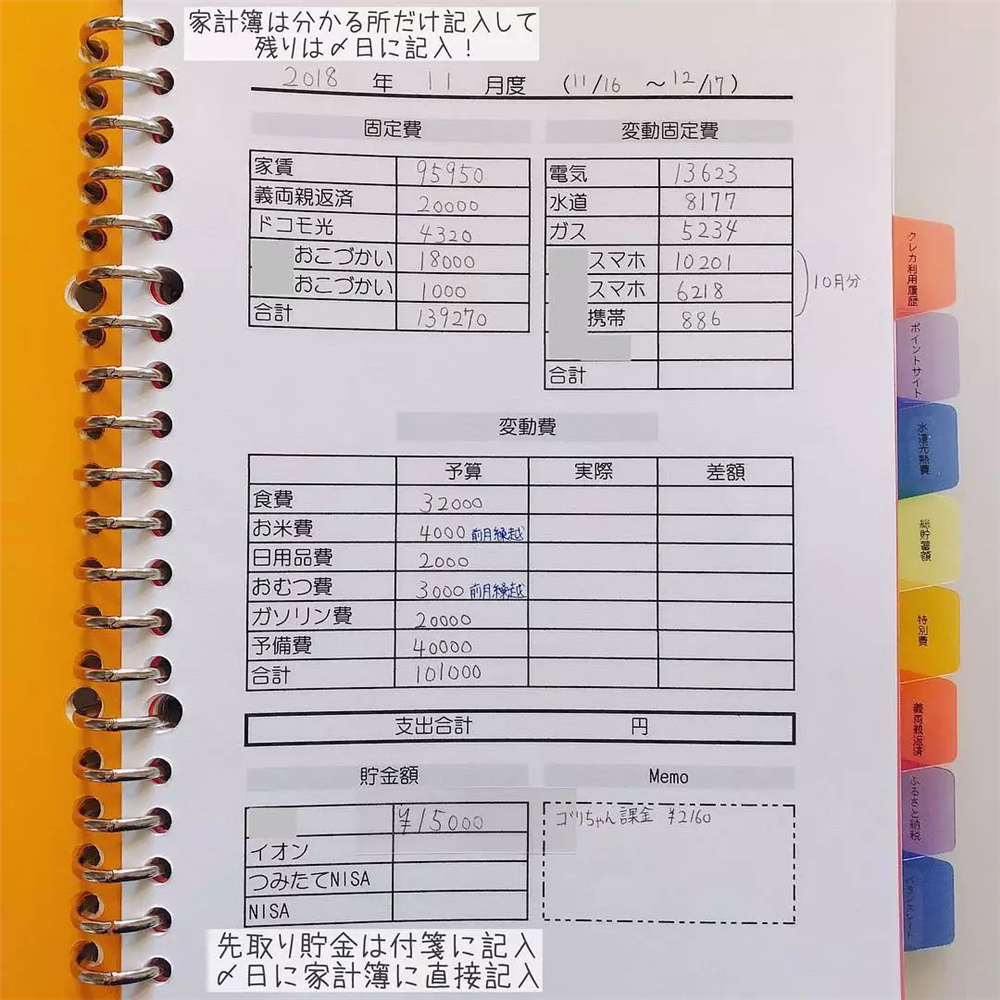 家計簿は分かる所だけ記入して
残りは〆日に記入！
2018 年 11 月度 (11/16 ～12/17)
固定費
家賃 95950
義両親返済 20000
ドコモ光 4320
おこづかい 18000
おこづかい 1000
合計 139270
変動固定費
電気 13623
水道 8177
ガス 5234
スマホ 10201
スマホ 6218
携帯 886
10月分
合計
変動費
予算 実際 差額
食費 32000
お米費 4000 前月繰越
日用品費 2000
おむつ費 3000 前月繰越
ガソリン費 20000
予備費 40000
合計 101000
支出合計 円
貯金額
¥15000
イオン
つみたてNISA
NISA
Memo
ゴリちゃん課金 ¥2160
先取り貯金は付箋に記入
〆日に家計簿に直接記入
クレカ利用履歴
ポイントサイト
水道光熱費
総貯蓄額
特別費
義両親返済
ふるさと納税
バランスシート